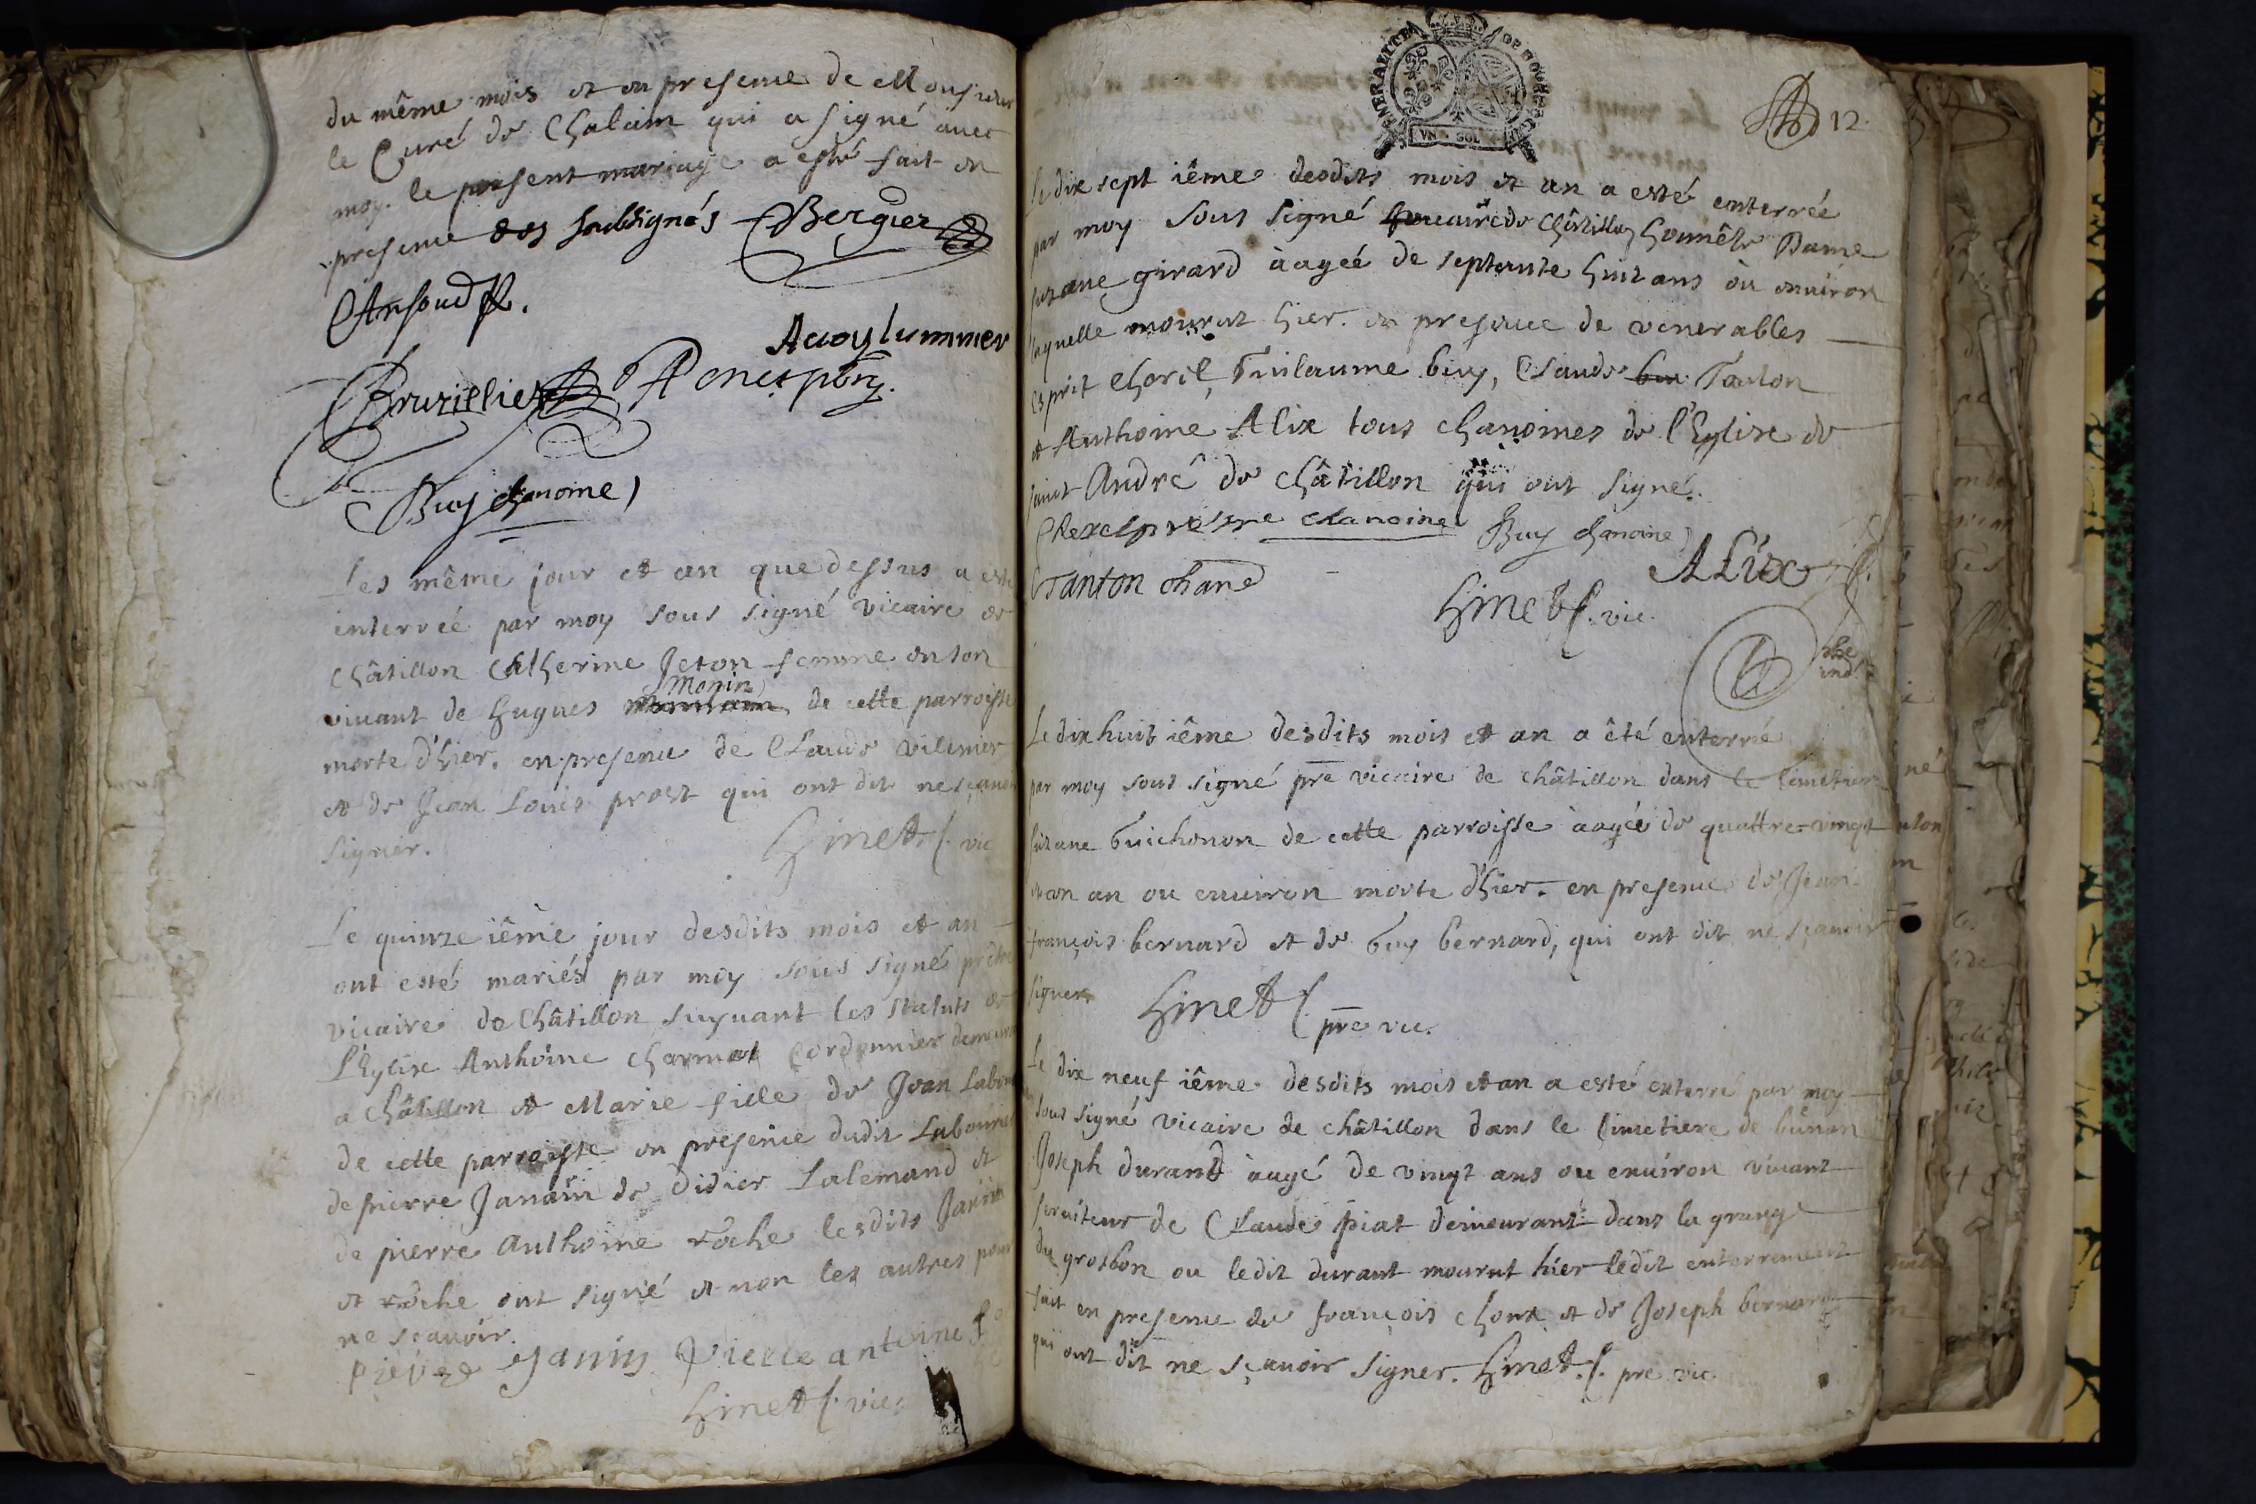 du même mois et en presence de Monsieur
le Curé de Chalain qui a signé avec
moy. le present mariage a esté fait en
presence des soubsignés Bergier
Ansoud
Bruzillier
Buy chanoine
Les même jour et an que dessus a esté
interréé par moy sous signé vicaire de
châtillon Catherine Jeton femme en son
vivant de hugues Monin de cette parroisse
morte d'hier. en presence de Claude vilimier
et de Jean Louis prost qui ont dit ne sçavoir
signer.
hinet vic
Le quinze ième jour desdits mois et an
ont esté mariés par moy sous signé prêtre
vicaire de Châtillon suyvant les statuts de
l'Eglise Anthoine charmet Cordonnier demeurant
a châtillon et Marie fille de Jean
de cette parroisse en presence dudit
de pierre Janin de Didier Lalemand et
de pierre Anthoine roche lesdits Janin
et roche ont signé et non les autres pour
ne sçavoir.
pierre Janin pierre antoine
hinet vic.
GENERALITE DE BOURGOGNE
UN SOL
12.
Le dix sept ième desdits mois et an a esté enterréé
par moy sous signé vicaire de Châtillon honnête Dame
suzane girard àagéé de septente huit ans où environ
laquelle mourut hier. en presence de venerables
esprit Guilaume buy, Claude Tanton
et Anthoine Alix tous chanoines de l'Eglise de
saint André de châtillon qui ont signé.
chanoine Buy chanoine
Alix
Tanton chane
hinet vic.
Le dixhuit ième desdits mois et an a êté enterréé
par moy sous signé pre vicaire de châtillon dans le Cimetier
suzane Guichonon de cette parroisse àagéé de quattre-vingt
et un an ou environ morte d'hier. en presence de Jean
françois bernard et de Guy bernard, qui ont dit ne sçavoir
signer
hinet pre vic.
Le dix neuf ième desdits mois et an a esté enterré par moy
sous signé vicaire de châtillon dans le Cimetiere de
Joseph durand àagé de vingt ans ou environ vivant
serviteur de Claude piat demeurant dans la grange
du grosbon ou ledit durant mourut hier ledit enterrement
fait en presence de françois et de Joseph bernard
qui ont dit ne sçavoir signer. hinet pre vic